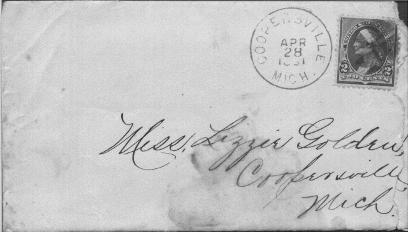 COOPERSVILLE
APR
28
MICH.
2 2
Miss. Lizzie Golden,
Coopersville,
Mich.